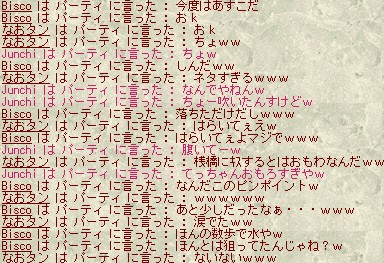 Bisco は パーティ に言った : 今度はあすこだ
Bisco は パーティ に言った : おｋ
なおタン は パーティ に言った : おｋ
なおタン は パーティ に言った : ちょｗｗ
Junchi は パーティ に言った : ちょｗ
Bisco は パーティ に言った : しんだｗｗ
なおタン は パーティ に言った : ネタすぎるｗｗｗ
Junchi は パーティ に言った : なんでやねんｗ
Junchi は パーティ に言った : ちょー吹いたんすけどｗ
Bisco は パーティ に言った : 落ちただけだしｗｗｗ
なおタン は パーティ に言った : はらいてぇえｗ
Bisco は パーティ に言った : はらいてぇ上マジでｗｗｗ
Junchi は パーティ に言った : 腹いてーｗ
なおタン は パーティ に言った : 桟橋に するとはおもわなんだｗｗ
Junchi は パーティ に言った : てっちゃんおもろすぎやｗ
Bisco は パーティ に言った : なんだこのピンポイントｗ
なおタン は パーティ に言った : ｗｗｗｗｗｗ
Bisco は パーティ に言った : あと少しだったなぁ・・・ｗｗｗ
なおタン は パーティ に言った : 涙でたｗｗ
Bisco は パーティ に言った : ほんの数歩で水やｗ
Bisco は パーティ に言った : ほんとは狙ってたんじゃね？ｗ
なおタン は パーティ に言った : ないないｗｗｗ